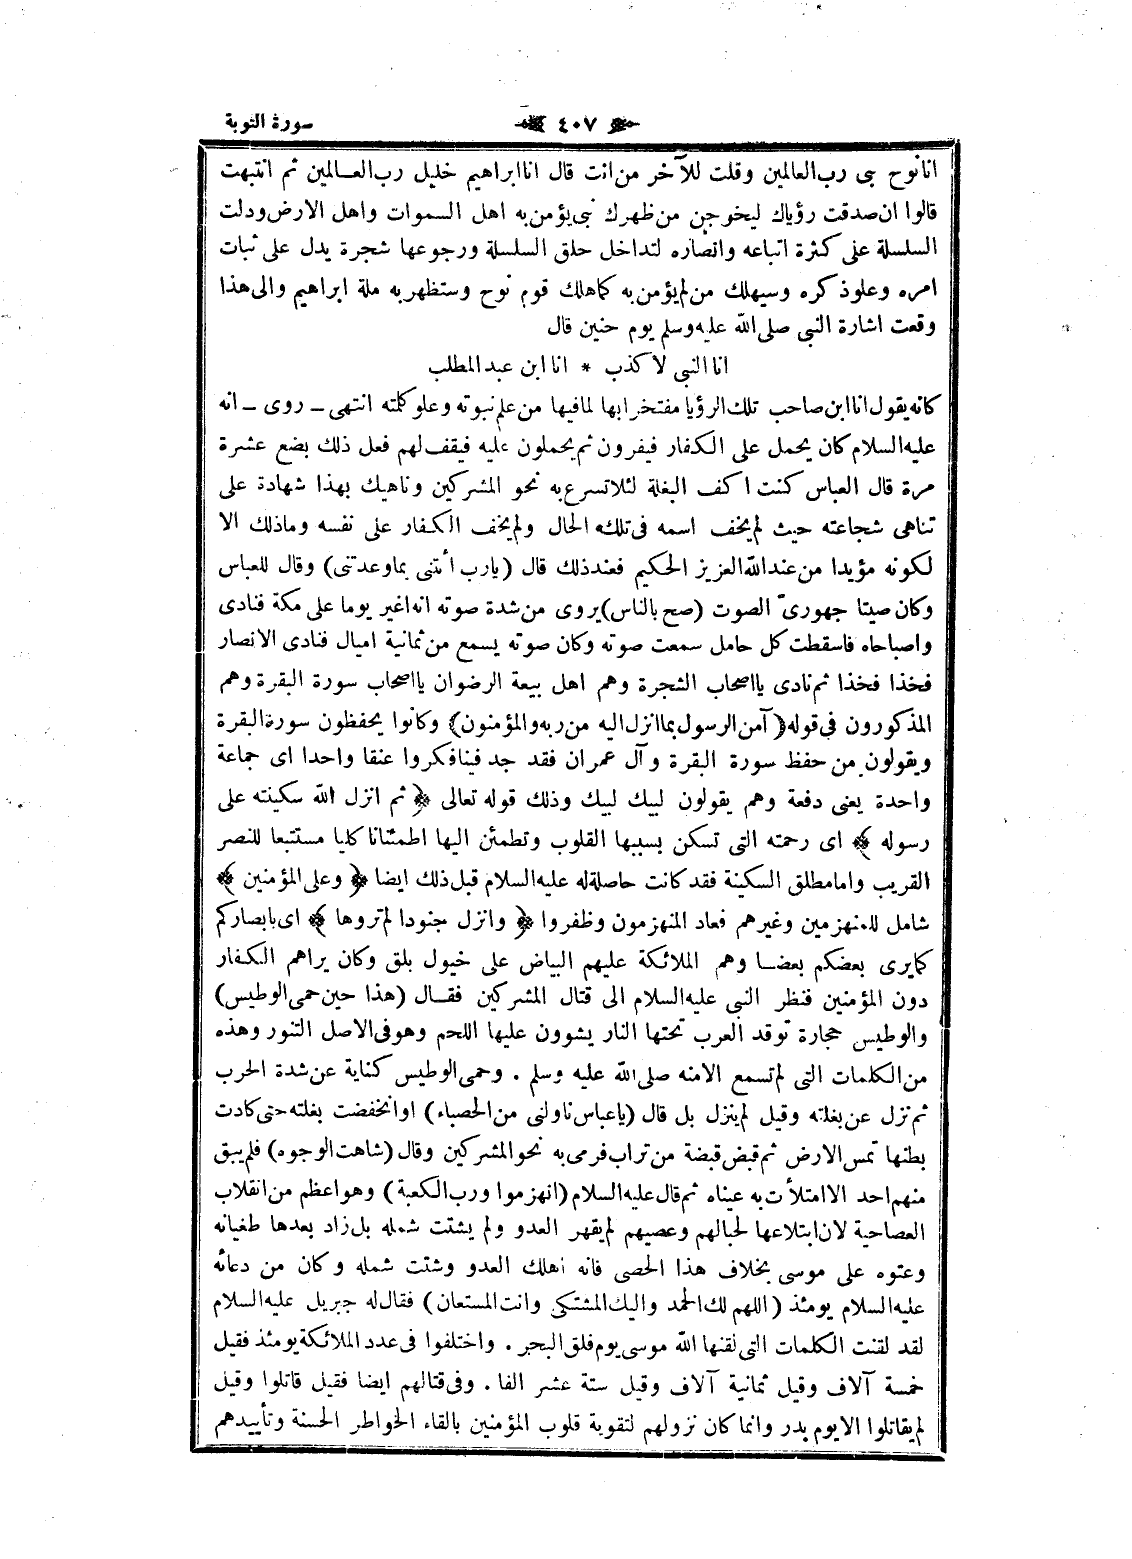 سورة التوبة ٤٠٧
انا نوح نبى رب العالمين وقلت للآخر من انت قال انا ابراهيم خليل رب العـالمين ثم انتبهت
قالوا ان صدقت رؤياك ليخرجن من ظهرك نبى يؤمن به اهل السموات واهل الارض ودلت
السلسلة على كثرة اتباعه وانصاره لتداخل حلق السلسلة ورجوعها شجرة يدل على ثبات
امره وعلو ذكره وسيهلك من لم يؤمن به كما هلك قوم نوح وستظهر به ملة ابراهيم والى هذا
وقعت اشارة النبى صلى الله عليه وسلم يوم حنين قال
انا النبى لا كذب * انا ابن عبد المطلب
كانه يقول انا ابن صاحب تلك الرؤيا مفتخرا بها لما فيها من علم نبوته وعلو كلمته انتهى ـ روى ـ انه
عليه السلام كان يحمل على الكفار فيفرون ثم يحملون عليه فيقف لهم فعل ذلك بضع عشرة
مرة قال العباس كنت اكف البغلة لئلا تسرع به نحو المشركين وناهيك بهذا شهادة على
تناهى شجاعته حيث لم يخف اسمه فى تلك الحال ولم يخف الكفار على نفسه وما ذلك الا
لكونه مؤيدا من عند الله العزيز الحكيم فعند ذلك قال (يارب أئتنى بما وعدتنى) وقال للعباس
وكان صيتا جهورىّ الصوت (صح بالناس) يروى من شدة صوته انه اغير يوما على مكة فنادى
واصباحاه فاسقطت كل حامل سمعت صوته وكان صوته يسمع من ثمانية اميال فنادى الانصار
فخذا فخذا ثم نادى يا اصحاب الشجرة وهم اهل بيعة الرضوان يا اصحاب سورة البقرة وهم
المذكورون فى قوله (آمن الرسول بما انزل اليه من ربه والمؤمنون) وكانوا يحفظون سورة البقرة
ويقولون من حفظ سورة البقرة وآل عمران فقد جد فينا فكروا عنقا واحدا اى جماعة
واحدة يعنى دفعة وهم يقولون لبيك لبيك وذلك قوله تعالى ﴿ ثم انزل الله سكينته على
رسوله ﴾ اى رحمته التى تسكن بسببها القلوب وتطمئن اليها اطمئنانا كليا مستتبعا للنصر
القريب واما مطلق السكينة فقد كانت حاصلة له عليه السلام قبل ذلك ايضا ﴿ وعلى المؤمنين ﴾
شامل للمنهزمين وغيرهم فعاد المنهزمون وظفروا ﴿ وانزل جنودا لم تروها ﴾ اى بابصاركم
كما يرى بعضكم بعضـا وهم الملائكة عليهم البياض على خيول بلق وكان يراهم الكفار
دون المؤمنين فنظر النبى عليه السلام الى قتال المشركين فقـال (هذا حين حمى الوطيس)
والوطيس حجارة توقد العرب تحتها النار يشوون عليها اللحم وهو فى الاصل التنور وهذه
من الكلمات التى لم تسمع الا منه صلى الله عليه وسلم . وحمى الوطيس كناية عن شدة الحرب
ثم نزل عن بغلته وقيل لم ينزل بل قال (يا عباس ناولنى من الحصباء) او انخفضت بغلته حتى كادت
بطنها تمس الارض ثم قبض قبضة من تراب فرمى به نحو المشركين وقال (شاهت الوجوه) فلم يبق
منهم احد الا امتلأت به عيناه ثم قال عليه السلام (انهزموا ورب الكعبة) وهو اعظم من انقلاب
العصاحية لان ابتلاعها لحبالهم وعصيهم لم يقهر العدو ولم يشتت شمله بل زاد بعدها طغيانه
وعتوه على موسى بخلاف هذا الحصى فانه اهلك العدو وشتت شمله وكان من دعائه
عليه السلام يومئذ (اللهم لك الحمد واليك المشتكى وانت المستعان) فقال له جبريل عليه السلام
لقد لقنت الكلمات التى لقنها الله موسى يوم فلق البحر . واختلفوا فى عدد الملائكة يومئذ فقيل
خمسة آلاف وقيل ثمانية آلاف وقيل ستة عشر الفا . وفى قتالهم ايضا فقيل قاتلوا وقيل
لم يقاتلوا الا يوم بدر وانما كان نزولهم لتقوية قلوب المؤمنين بالقاء الخواطر الحسنة وتأييدهم